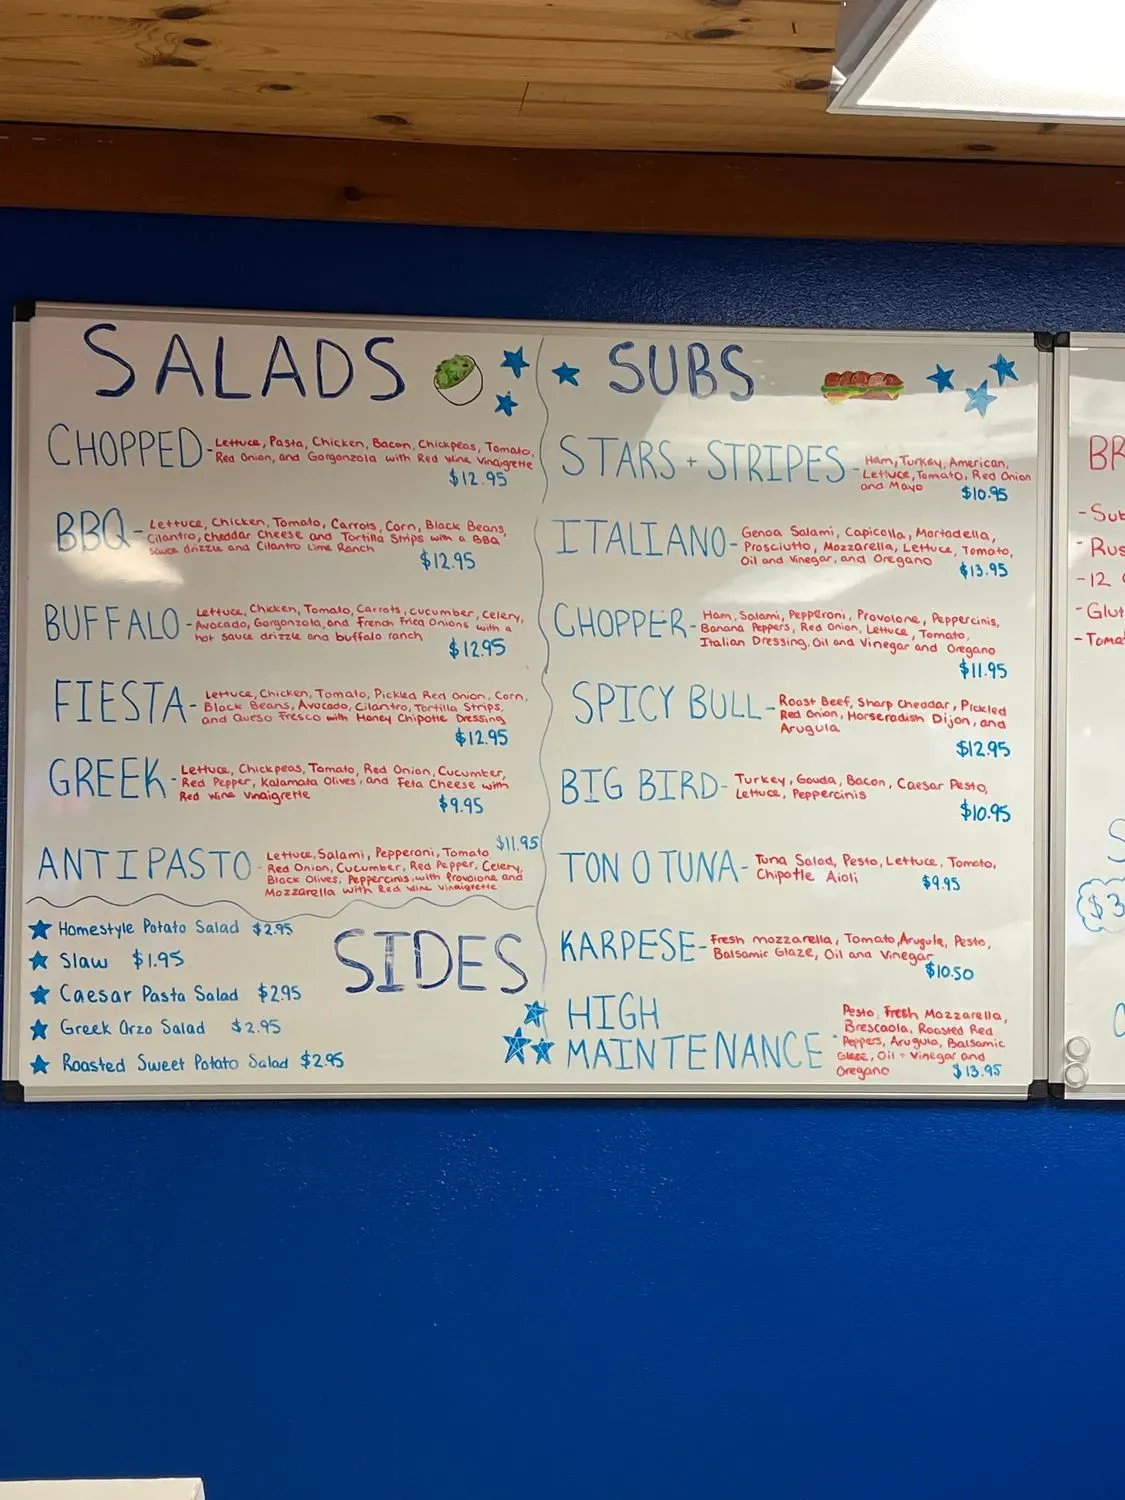 SALADS
CHOPPED - Lettuce, Pasta, Chicken, Bacon, Chickpeas, Tomato,
Red Onion, and Gorgonzola with Red Wine Vinaigrette
$12.95
BBQ - Lettuce, Chicken, Tomato, Carrots, Corn, Black Beans,
Cilantro, Cheddar Cheese and Tortilla Strips with a BBQ
sauce drizzle and Cilantro Lime Ranch
$12.95
BUFFALO - Lettuce, Chicken, Tomato, Carrots, cucumber, Celery,
Avocado, Gorgonzola, and French Fried Onions with a
hot sauce drizzle and buffalo ranch
$12.95
FIESTA - Lettuce, Chicken, Tomato, Pickled Red Onion, Corn,
Black Beans, Avocado, Cilantro, Tortilla Strips,
and Queso Fresco with Honey Chipotle Dressing
$12.95
GREEK - Lettuce, Chickpeas, Tomato, Red Onion, Cucumber,
Red Pepper, Kalamata Olives, and Feta Cheese with
Red Wine Vinaigrette
$9.95
$11.95
ANTIPASTO - Lettuce, Salami, Pepperoni, Tomato
Red Onion, Cucumber, Red Pepper, Celery,
Black Olives, Peppercinis, with Provolone and
Mozzarella with Red Wine Vinaigrette
SIDES
Homestyle Potato Salad $2.95
Slaw $1.95
Caesar Pasta Salad $2.95
Greek Orzo Salad $2.95
Roasted Sweet Potato Salad $2.95
SUBS
STARS + STRIPES - Ham, Turkey, American,
Lettuce, Tomato, Red Onion
and Mayo $10.95
ITALIANO - Genoa Salami, Capicolla, Mortadella,
Prosciutto, Mozzarella, Lettuce, Tomato,
Oil and Vinegar, and Oregano $13.95
CHOPPER - Ham, Salami, Pepperoni, Provolone, Peppercinis,
Banana Peppers, Red Onion, Lettuce, Tomato,
Italian Dressing, Oil and Vinegar and Oregano
$11.95
SPICY BULL - Roast Beef, Sharp Cheddar, Pickled
Red Onion, Horseradish Dijon, and
Arugula
$12.95
BIG BIRD - Turkey, Gouda, Bacon, Caesar Pesto,
Lettuce, Peppercinis
$10.95
TON O TUNA - Tuna Salad, Pesto, Lettuce, Tomato,
Chipotle Aioli $9.95
KARPESE - Fresh mozzarella, Tomato, Arugula, Pesto,
Balsamic Glaze, Oil and Vinegar
$10.50
HIGH
MAINTENANCE - Pesto, Fresh Mozzarella,
Brescaola, Roasted Red
Peppers, Arugula, Balsamic
Glaze, Oil + Vinegar and
Oregano $13.95
BR
- Sub
- Rus
- 12
- Glut
- Toma
S
$3